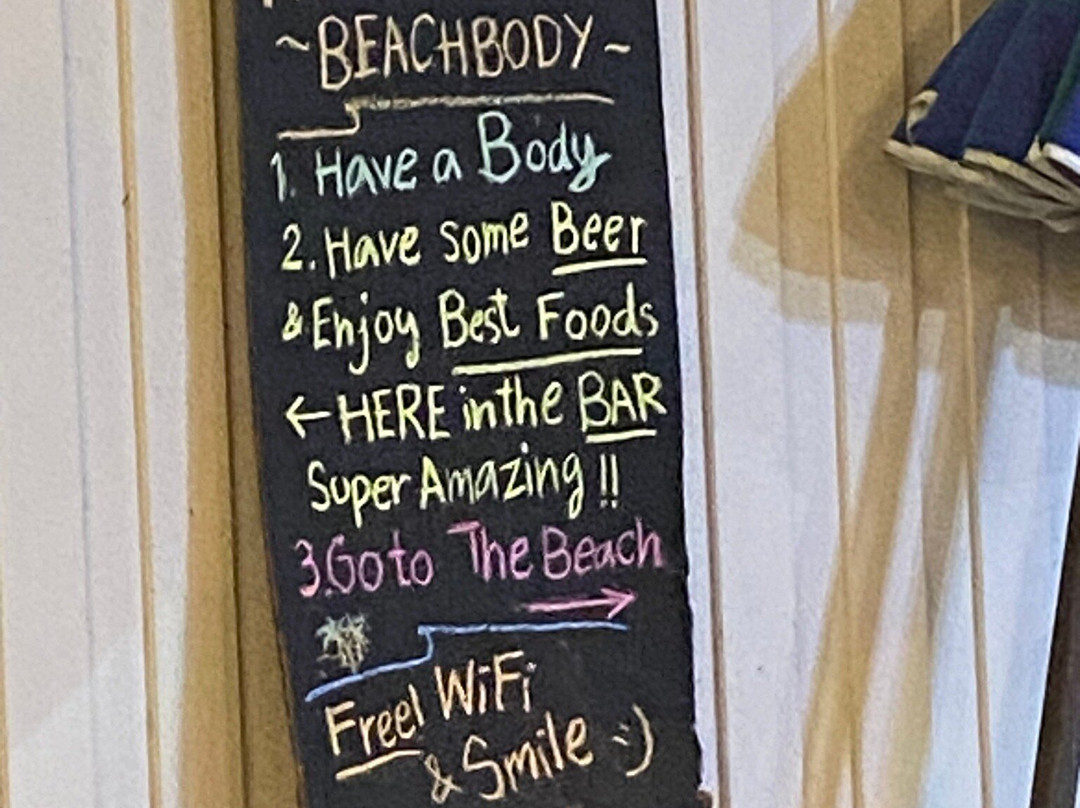 ~BEACHBODY~
1. Have a Body
2. Have some Beer
& Enjoy Best Foods
← HERE in the BAR
Super Amazing!!
3. Go to The Beach
→
Free! WiFi
& Smile :)